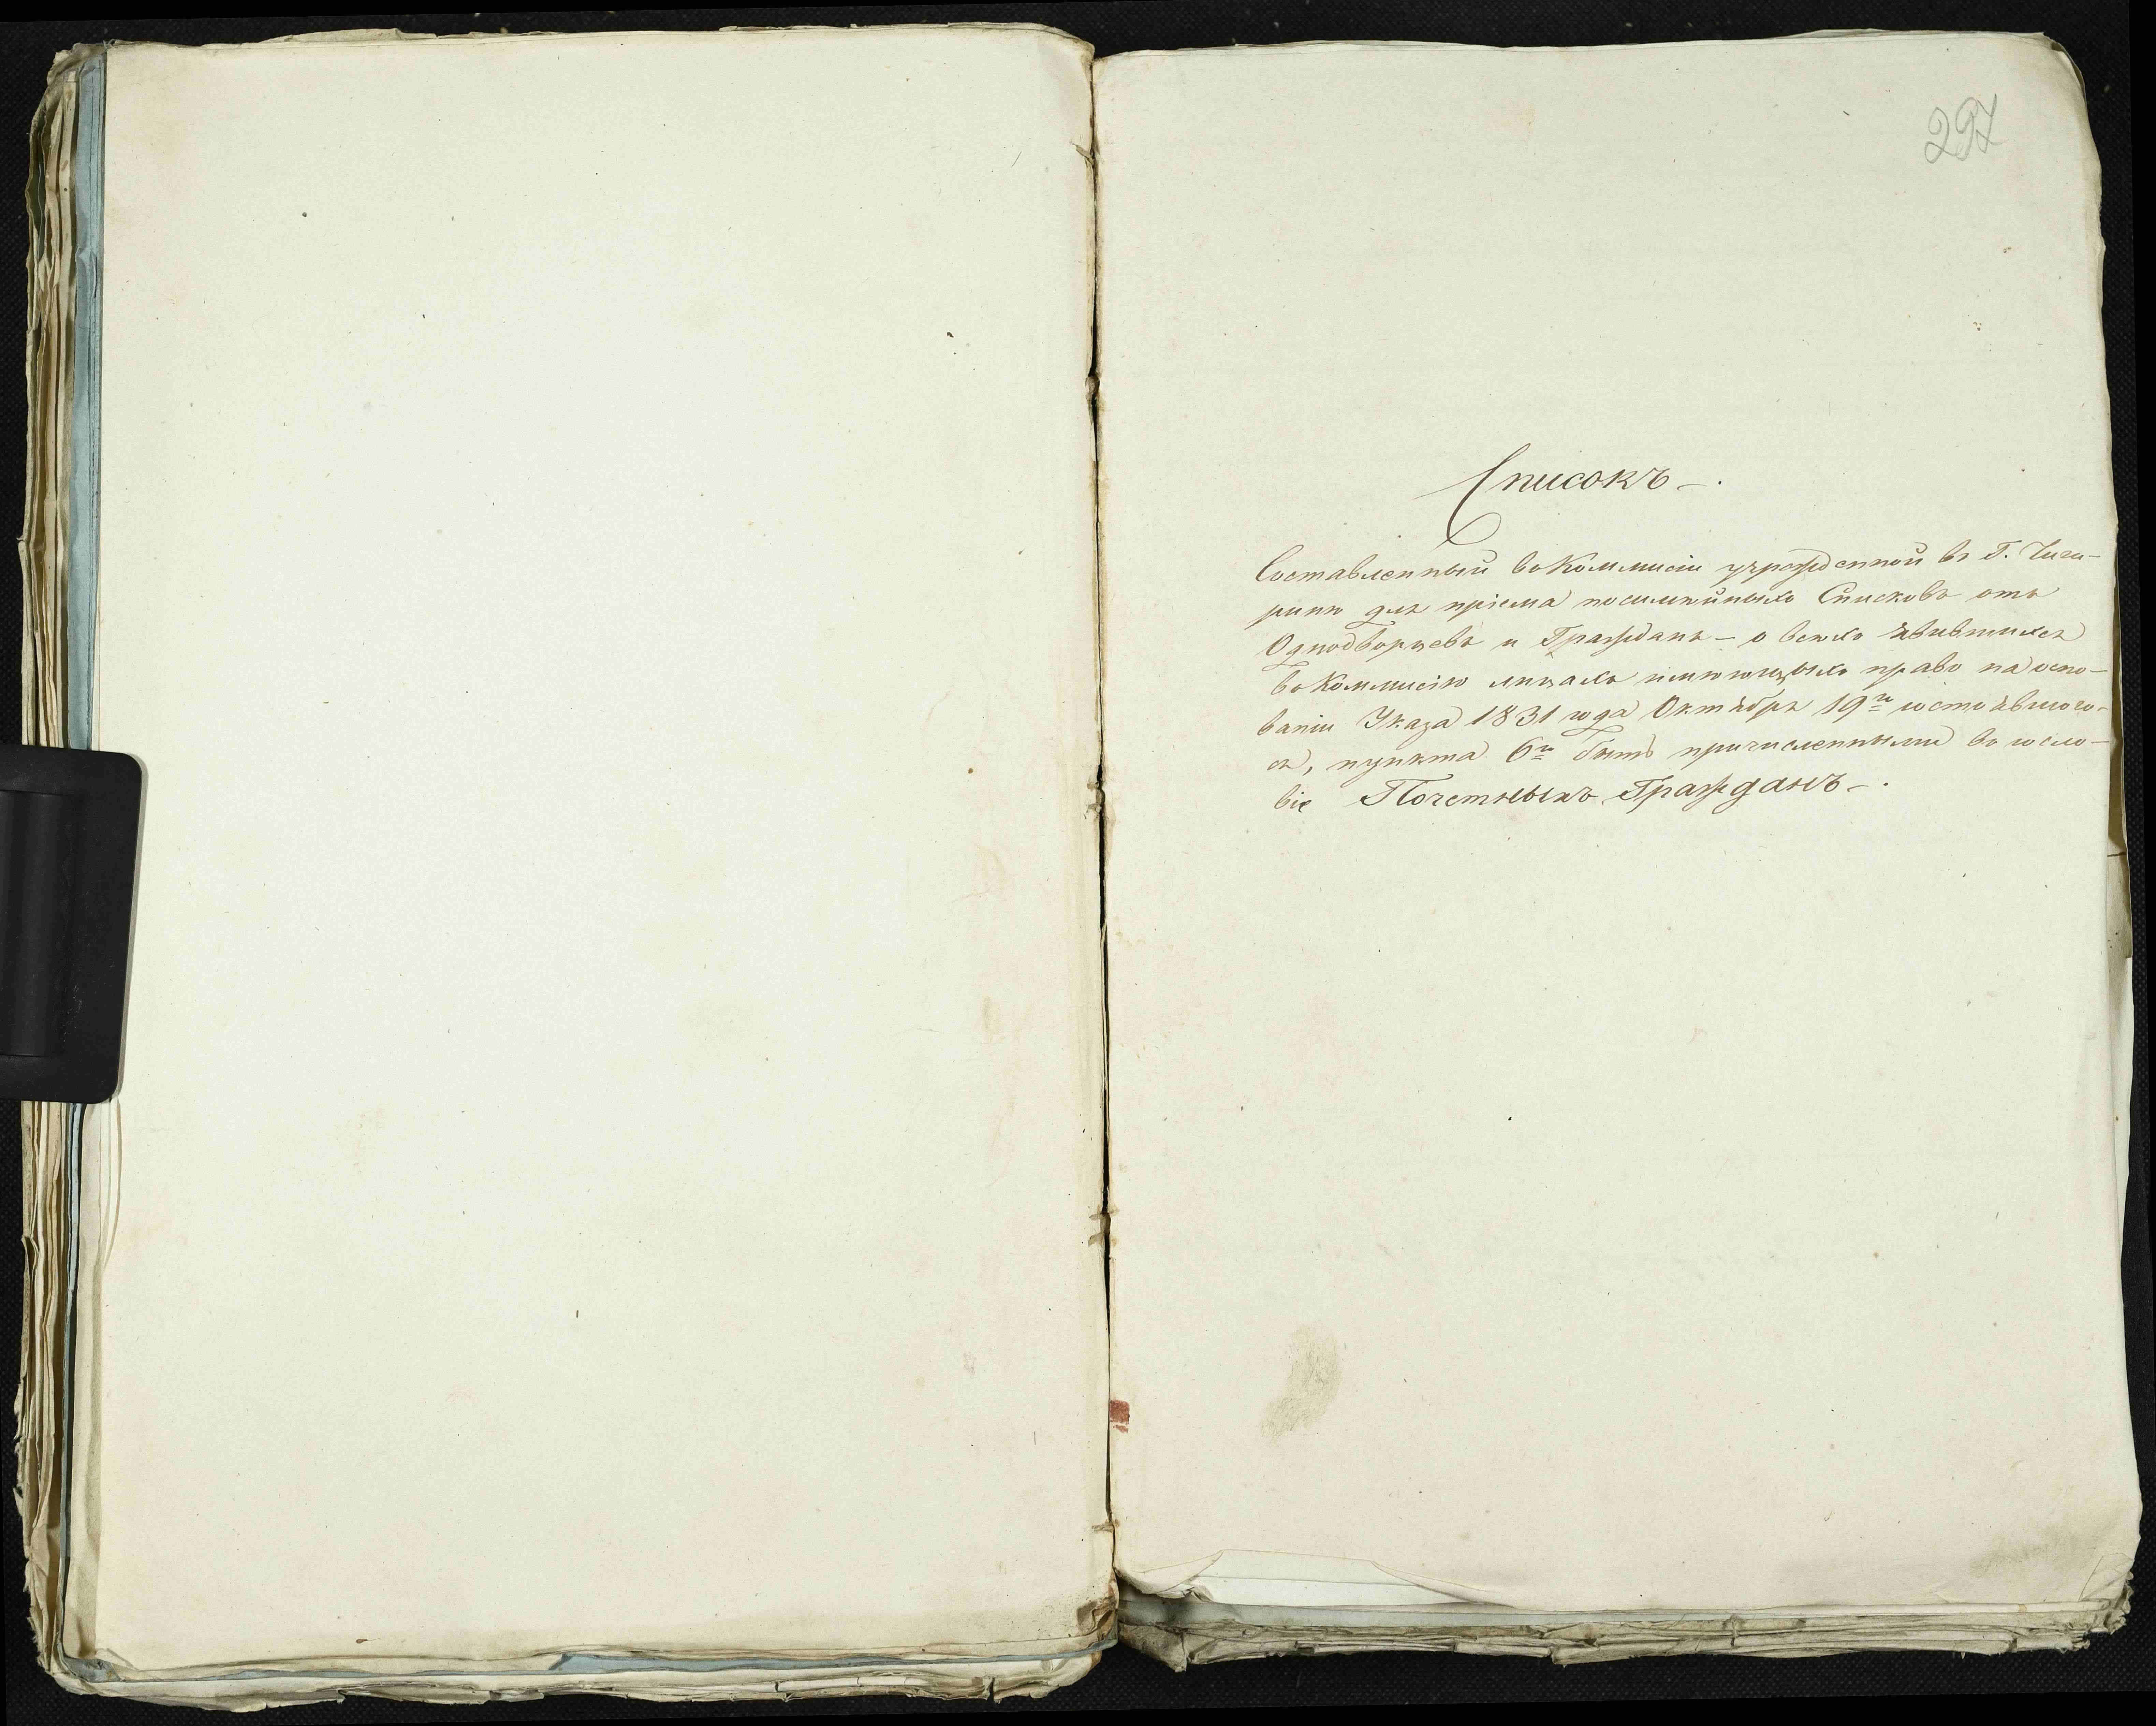 297
Списокъ —.
Составленный въ Коммисіи учрежденной въ Г. Чиги-
ринѣ для пріема посемѣйныхъ Списковъ отъ
Однодворцевъ и Гражданъ — о всѣхъ явившихся
въ Коммисію лицахъ имѣющихъ право на осно-
ваніи Указа 1831 года Октября 19го состоявшаго-
ся, пункта 6го быть причисленными въ сосло-
віе Почетныхъ Гражданъ —.